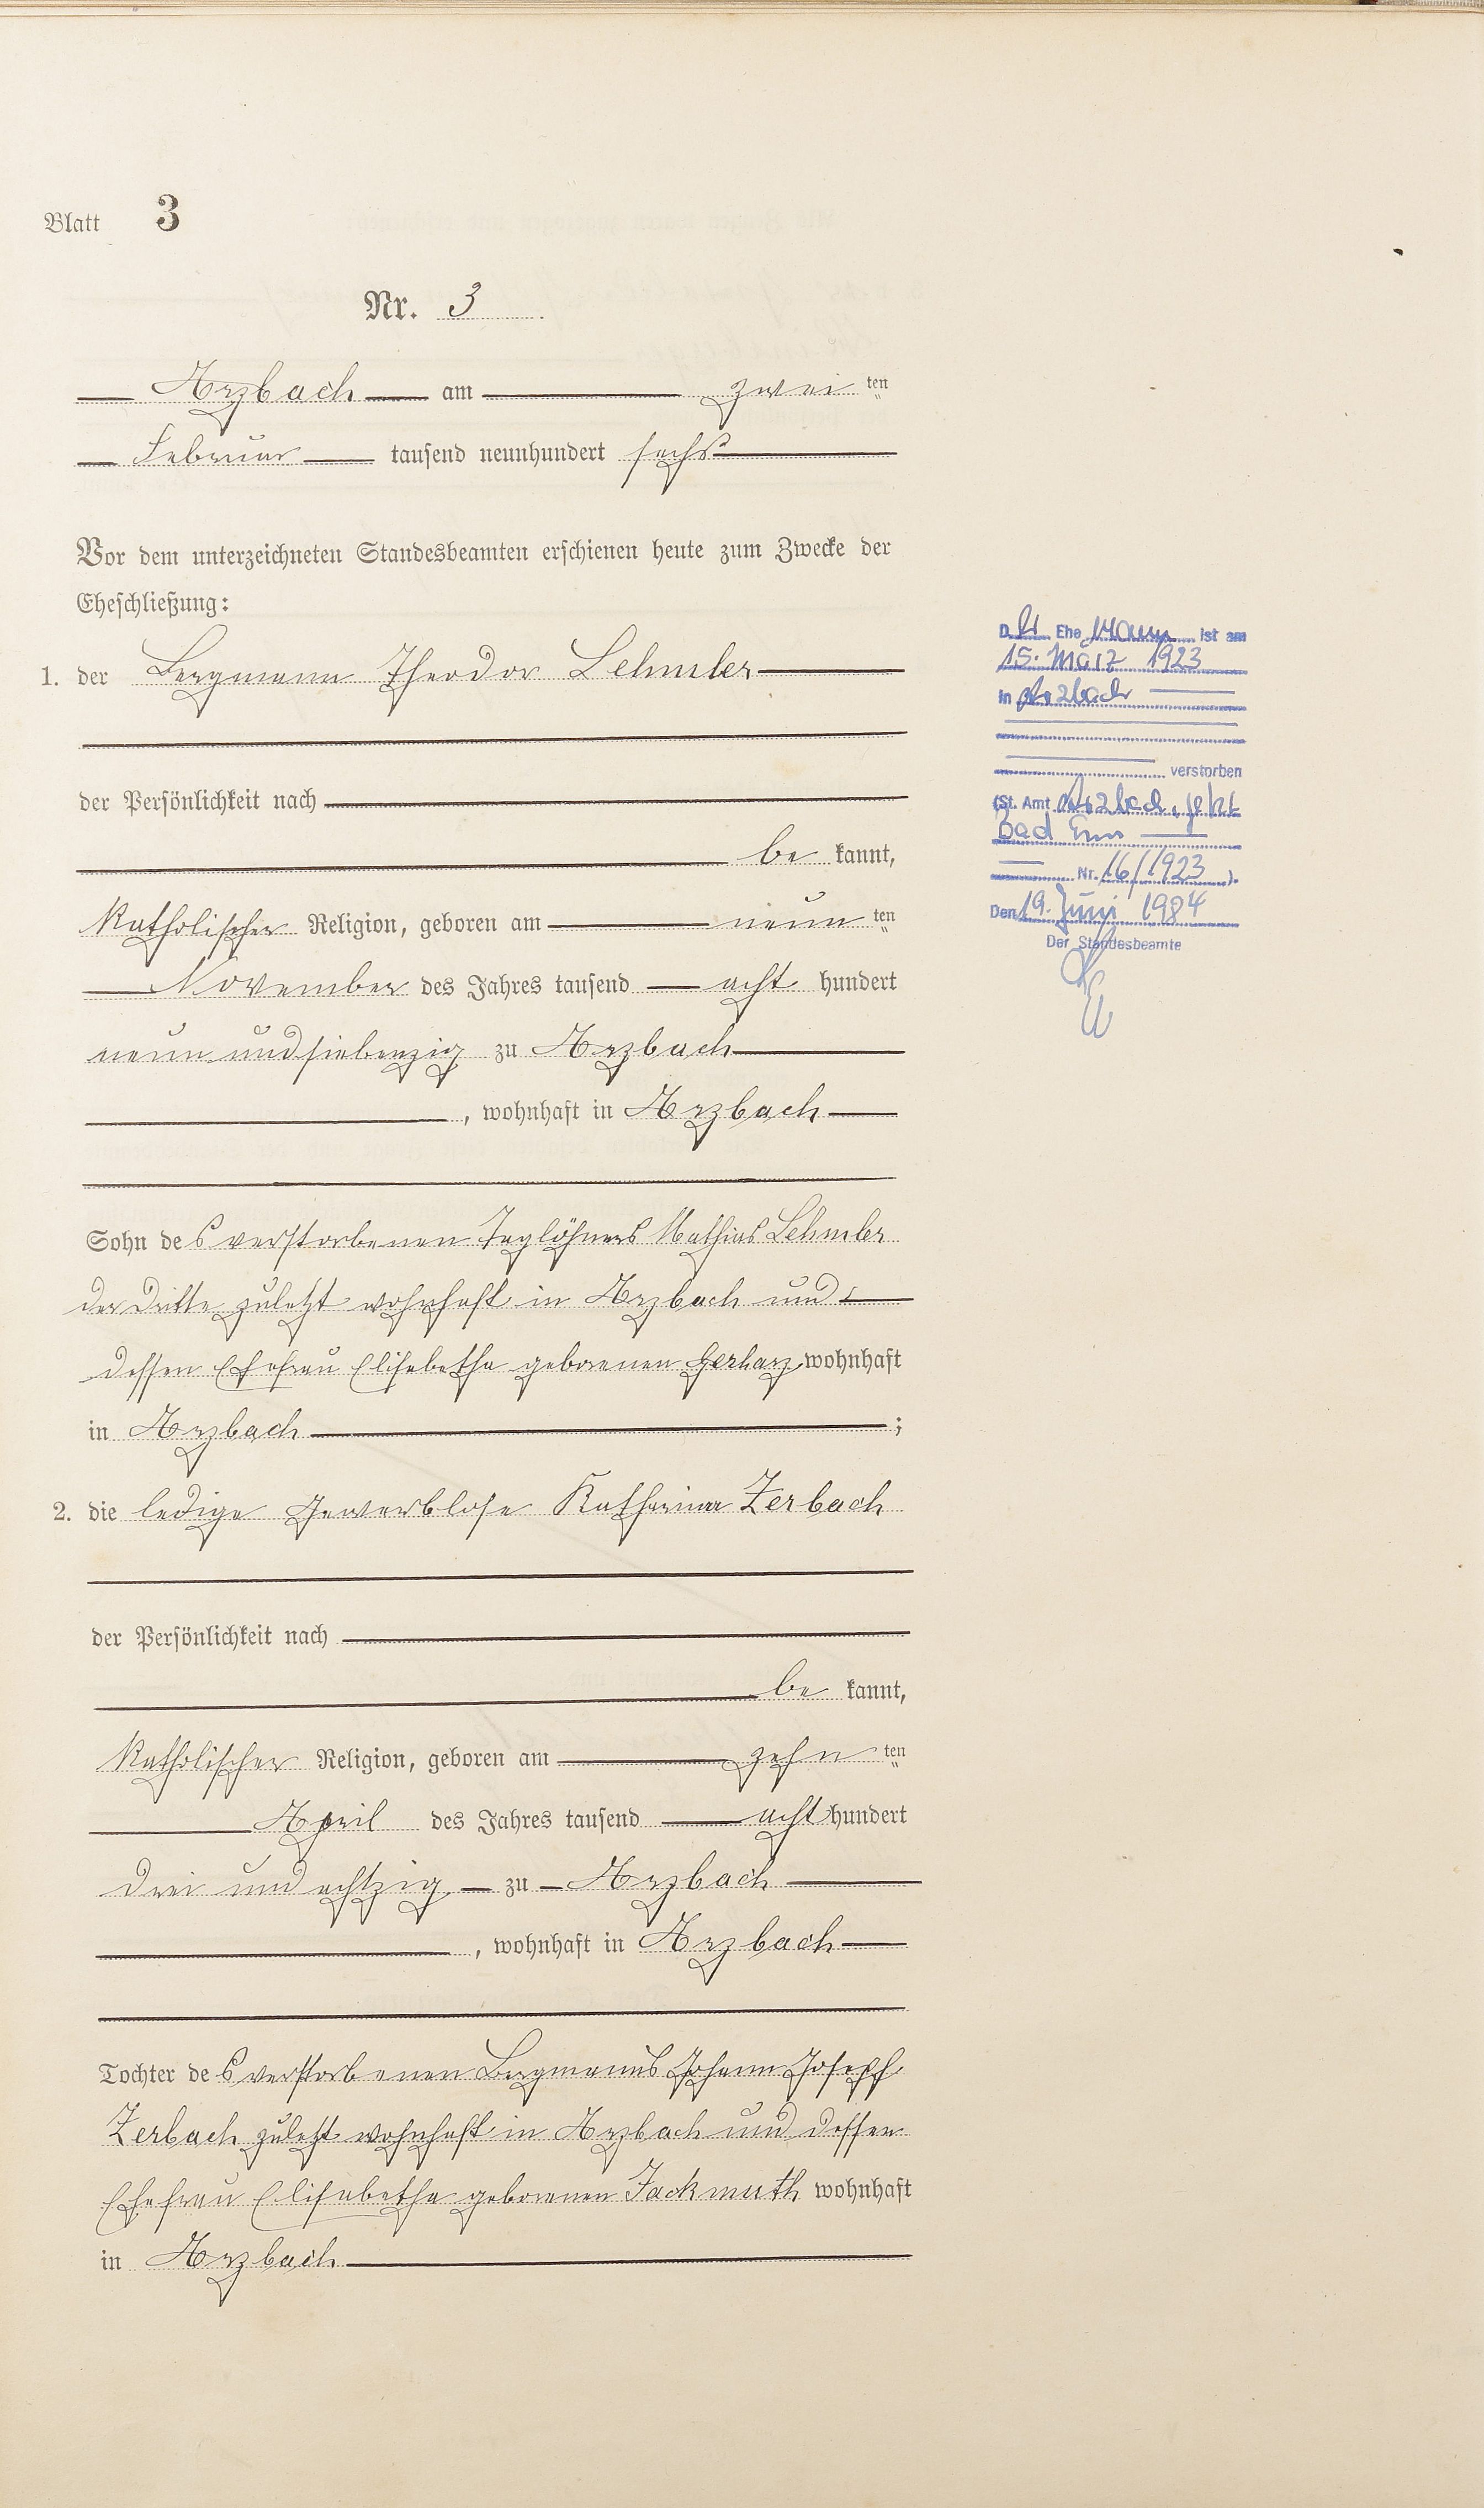 Blatt 3
Nr. 3
Arzbach am zwei ten
Februar tausend neunhundert sechs
Vor dem unterzeichneten Standesbeamten erschienen heute zum Zwecke der
Eheschließung:
1. der Bergmann Theodor Lehmler
der Persönlichkeit nach
be kannt,
Katholischer Religion, geboren am neun ten
November des Jahres tausend acht hundert
neun und siebenzig zu Arzbach
, wohnhaft in Arzbach
Sohn des verstorbenen Taglöhners Mathias Lehmler
der Dritte zuletzt wohnhaft in Arzbach und
dessen Ehefrau Elisabetha geborenen Gerharz wohnhaft
in Arzbach ;
2. die ledige Gewerblose Katharina Zerbach
der Persönlichkeit nach
be kannt,
Katholischer Religion, geboren am zehn ten
April des Jahres tausend acht hundert
drei und achtzig zu Arzbach
, wohnhaft in Arzbach
Tochter des verstorbenen Bergmanns Johann Joseph
Zerbach zuletzt wohnhaft in Arzbach und dessen
Ehefrau Elisabetha geborenen Jackmuth wohnhaft
in Arzbach
D. er Ehe Mann ist am
15. März 1923
in Arzbach
verstorben
(St. Amt Arzbach, jetzt
Bad Ems
Nr. 16/1923 ).
Den 19. Juni 1984
Der Standesbeamte